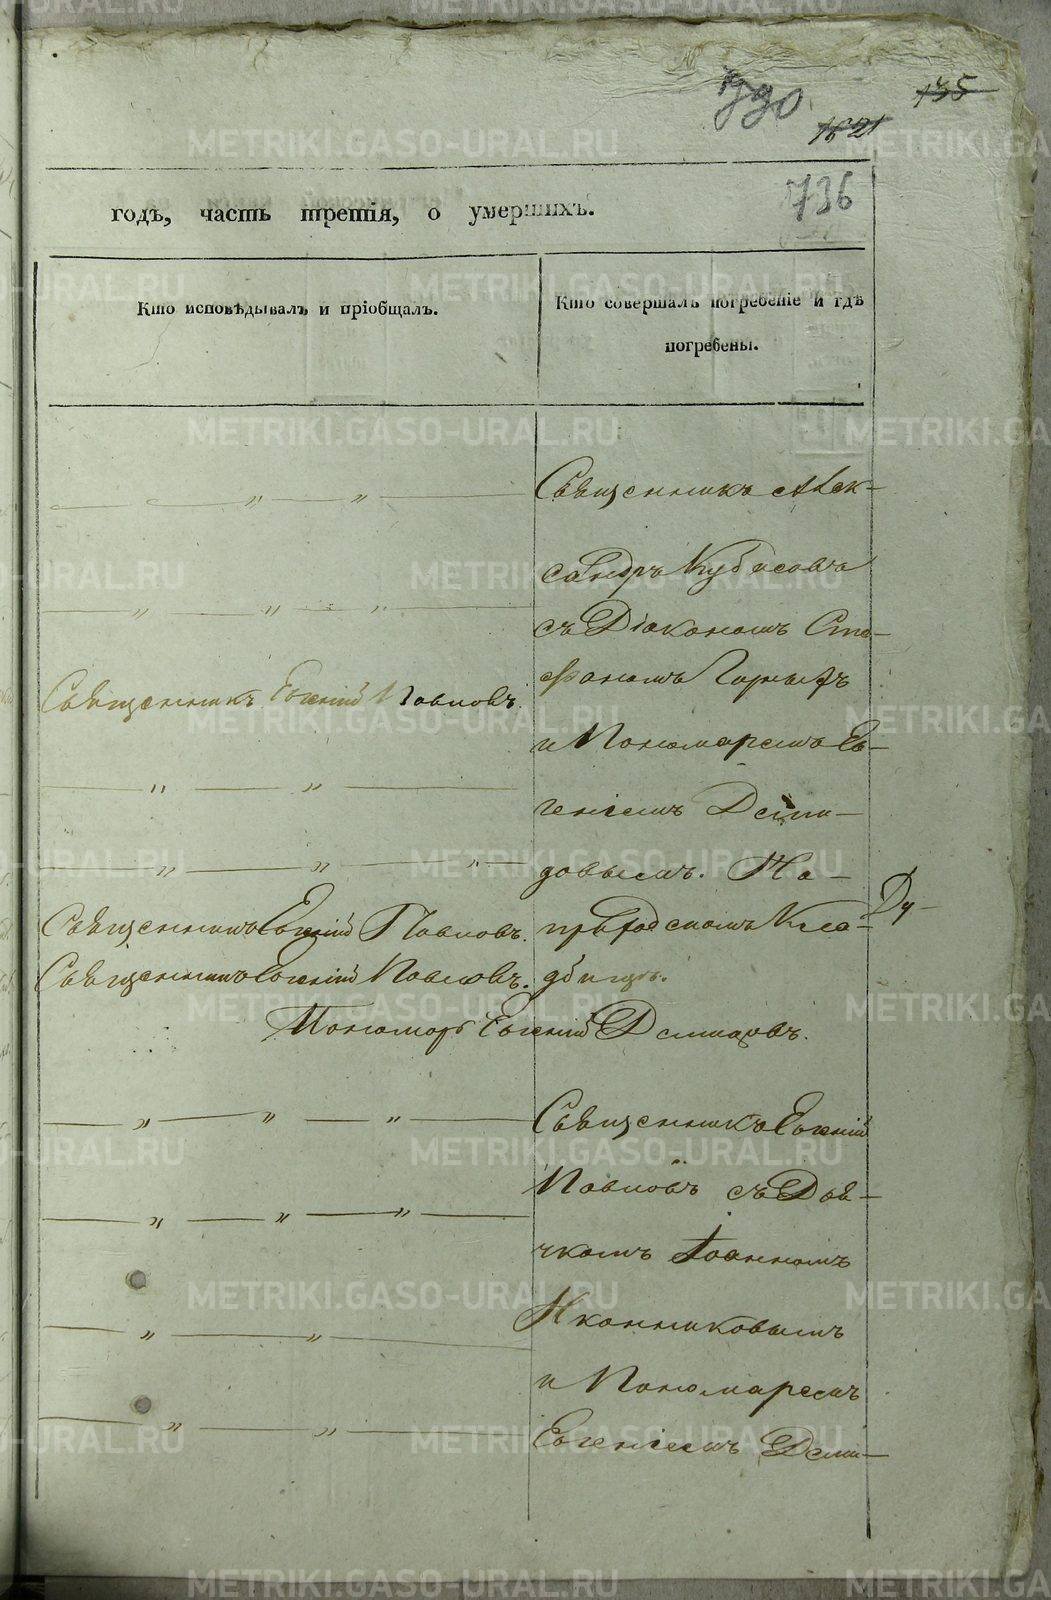 790.
135
1621
736
годъ, часть третія, о умершихъ.
Кто исповѣдывалъ и пріобщалъ.
Кто совершалъ погребеніе и гдѣ
погребены.
Священникъ Алек-
сандръ Кубасовъ
съ Діакономъ Сте-
фаномъ Горныхъ
Священникъ Евгеній Павловъ.
и Пономаремъ Ев-
геніемъ Деми-
довымъ. На
Священникъ Евгеній Павловъ.
приходскомъ Кла-
Ду-
Священникъ Евгеній Павловъ.
дбищѣ.
Пономарь Евгеній Демидовъ.
Священникъ Евгеній
Павловъ съ Дья-
чкомъ Іоанномъ
Иконниковымъ
и Пономаремъ
Евгеніемъ Деми-
METRIKI.GASO-URAL.RU